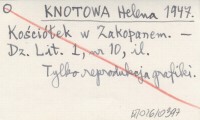 KNOTOWA Helena 1947.
Kościółek w Zakopanem. —
Dz. Lit. 1, nr 10, il.
Tylko reprodukcja grafiki.